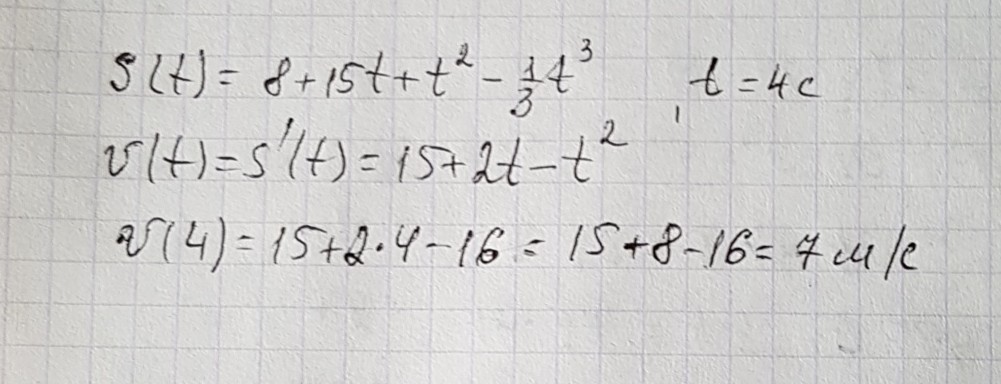 S(t) = 8+15t+t² - 1/3 t³, t = 4с
v(t) = s'(t) = 15+2t-t²
v(4) = 15+2·4-16 = 15+8-16 = 7 м/с